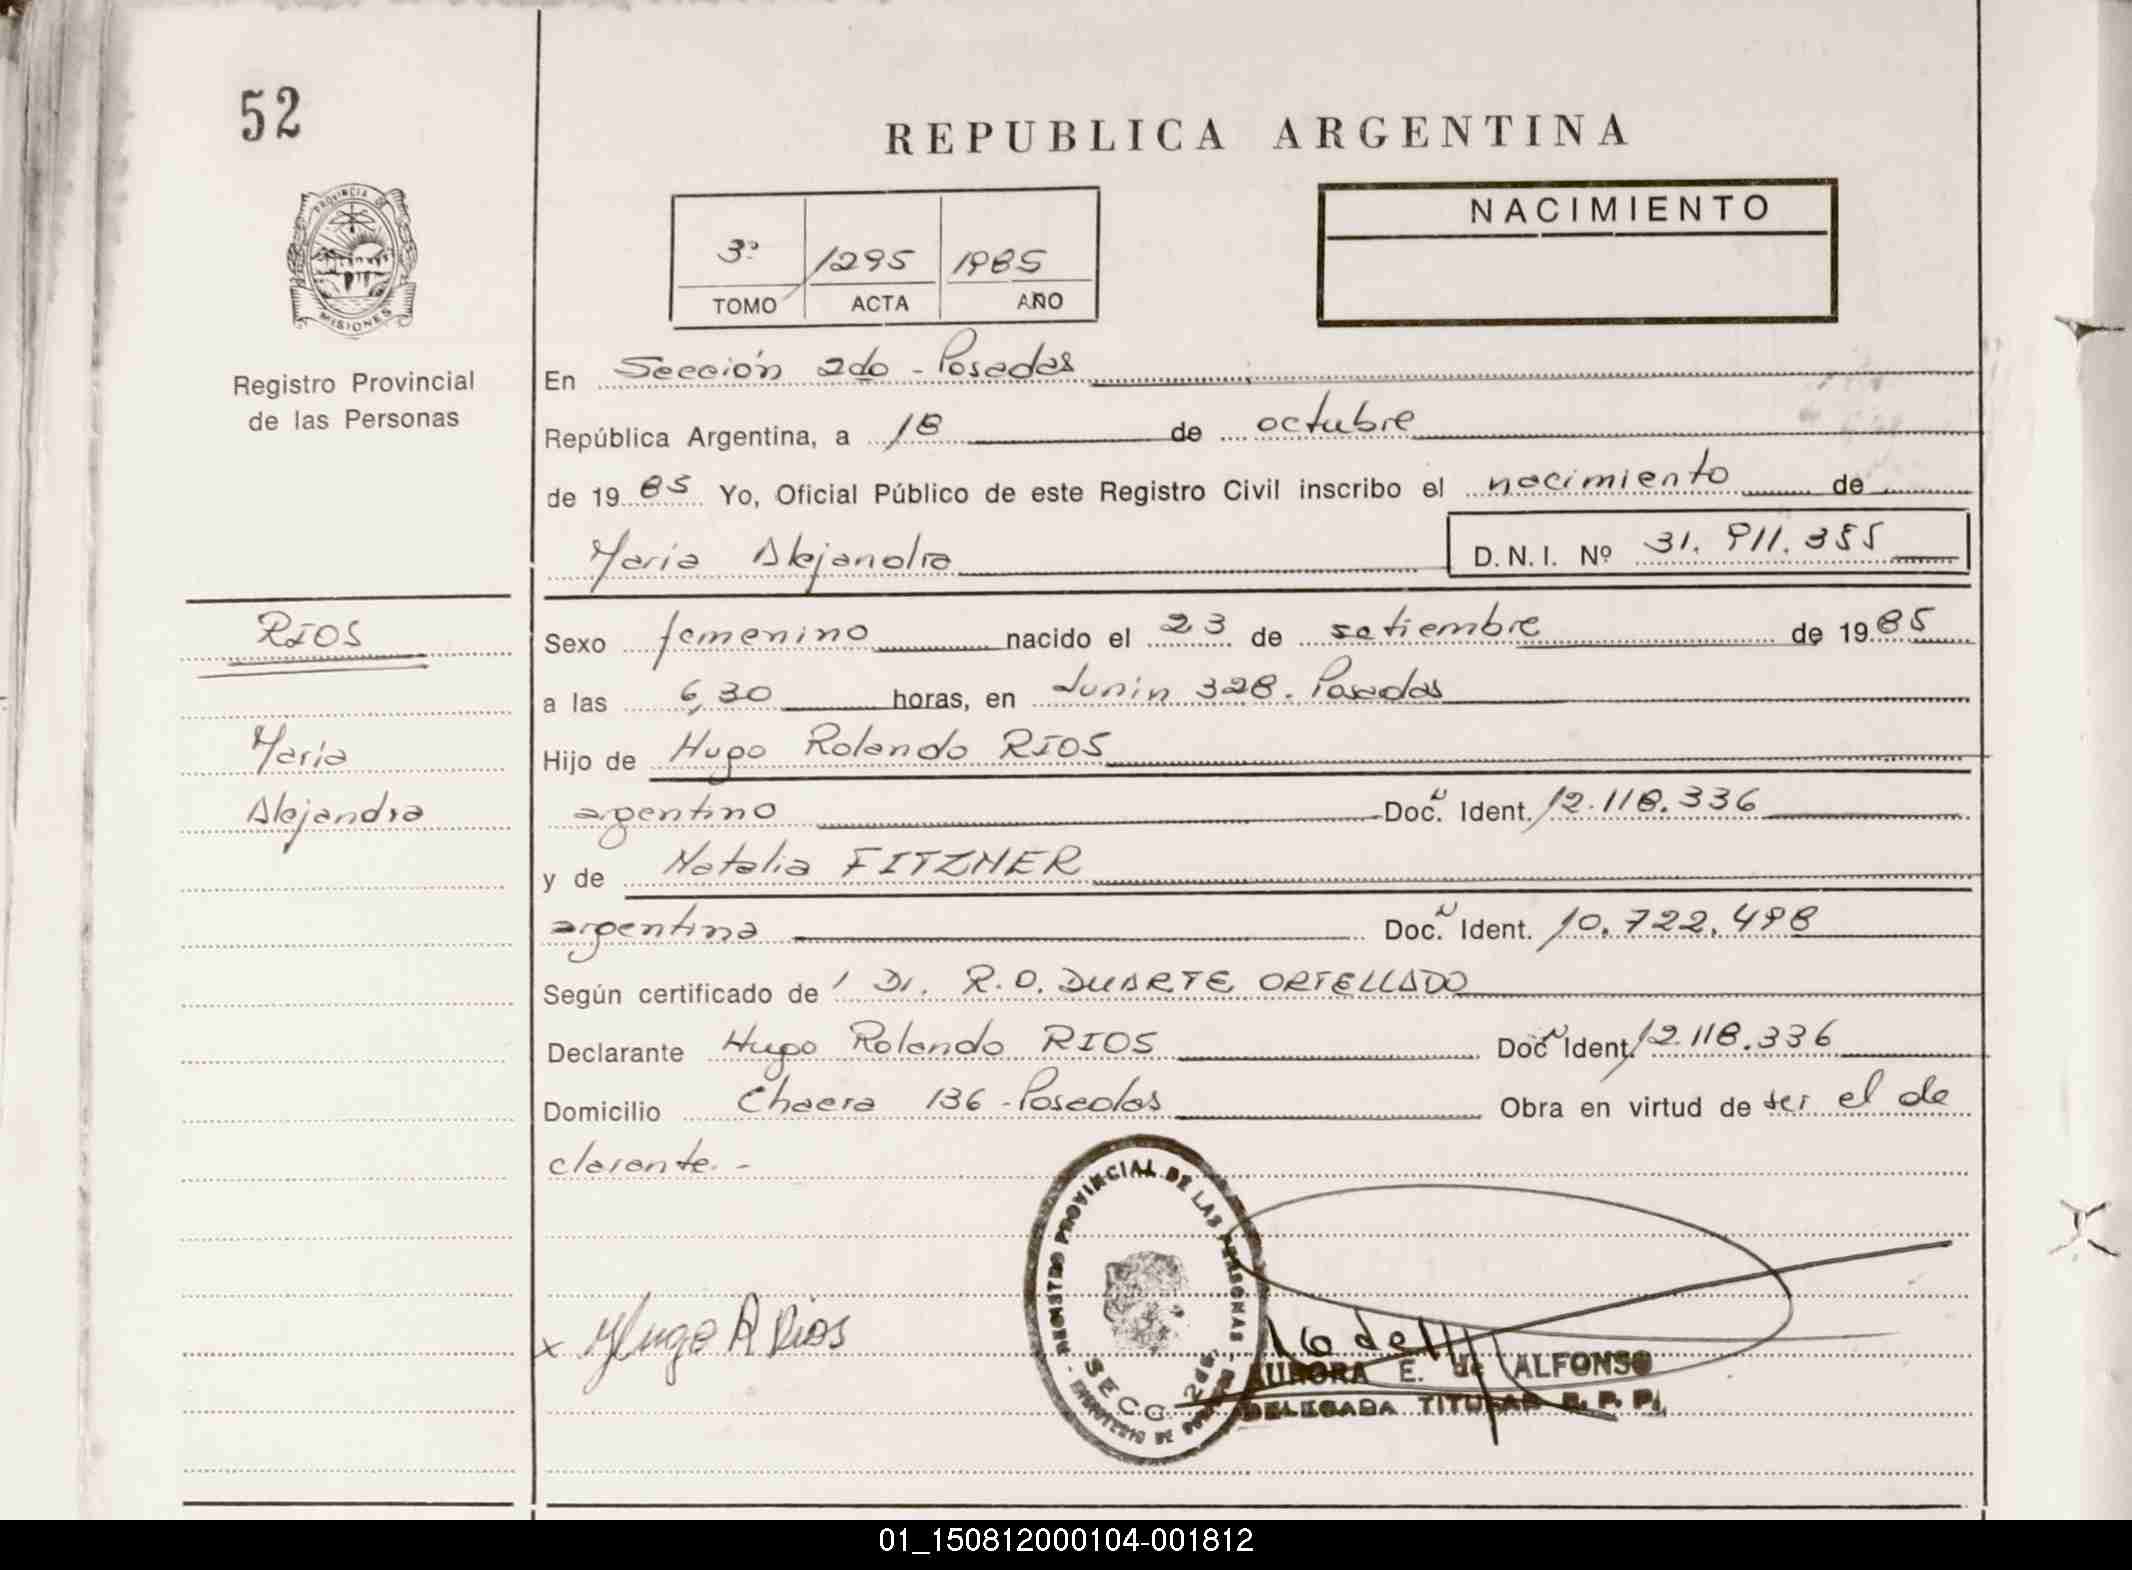 52
REPUBLICA ARGENTINA
PROVINCIA DE
MISIONES
Registro Provincial
de las Personas
3º 1295 1985
TOMO ACTA AÑO
NACIMIENTO
En Sección 2do - Posadas
República Argentina, a 18 de octubre
de 1985 Yo, Oficial Público de este Registro Civil inscribo el nacimiento de
María Alejandra D.N.I. Nº 31.911.355
RIOS
María
Alejandra
Sexo femenino nacido el 23 de setiembre de 1985
a las 6,30 horas, en Junín 328. Posadas
Hijo de Hugo Rolando RIOS
argentino Doc. N Ident. 12.118.336
y de Natalia FITZNER
argentina Doc. N Ident. 10.722.498
Según certificado de 1 Dr. R.O. DUARTE ORTELLADO
Declarante Hugo Rolando RIOS Doc N Ident. 12.118.336
Domicilio Chacra 136 - Posadas Obra en virtud de ser el de
clarante. -
REGISTRO PROVINCIAL DE LAS PERSONAS
SECC. 2da.
MINISTERIO DE
x Hugo R Rios
AURORA E. de ALFONSO
DELEGADA TITULAR R. P. P.
01_150812000104-001812